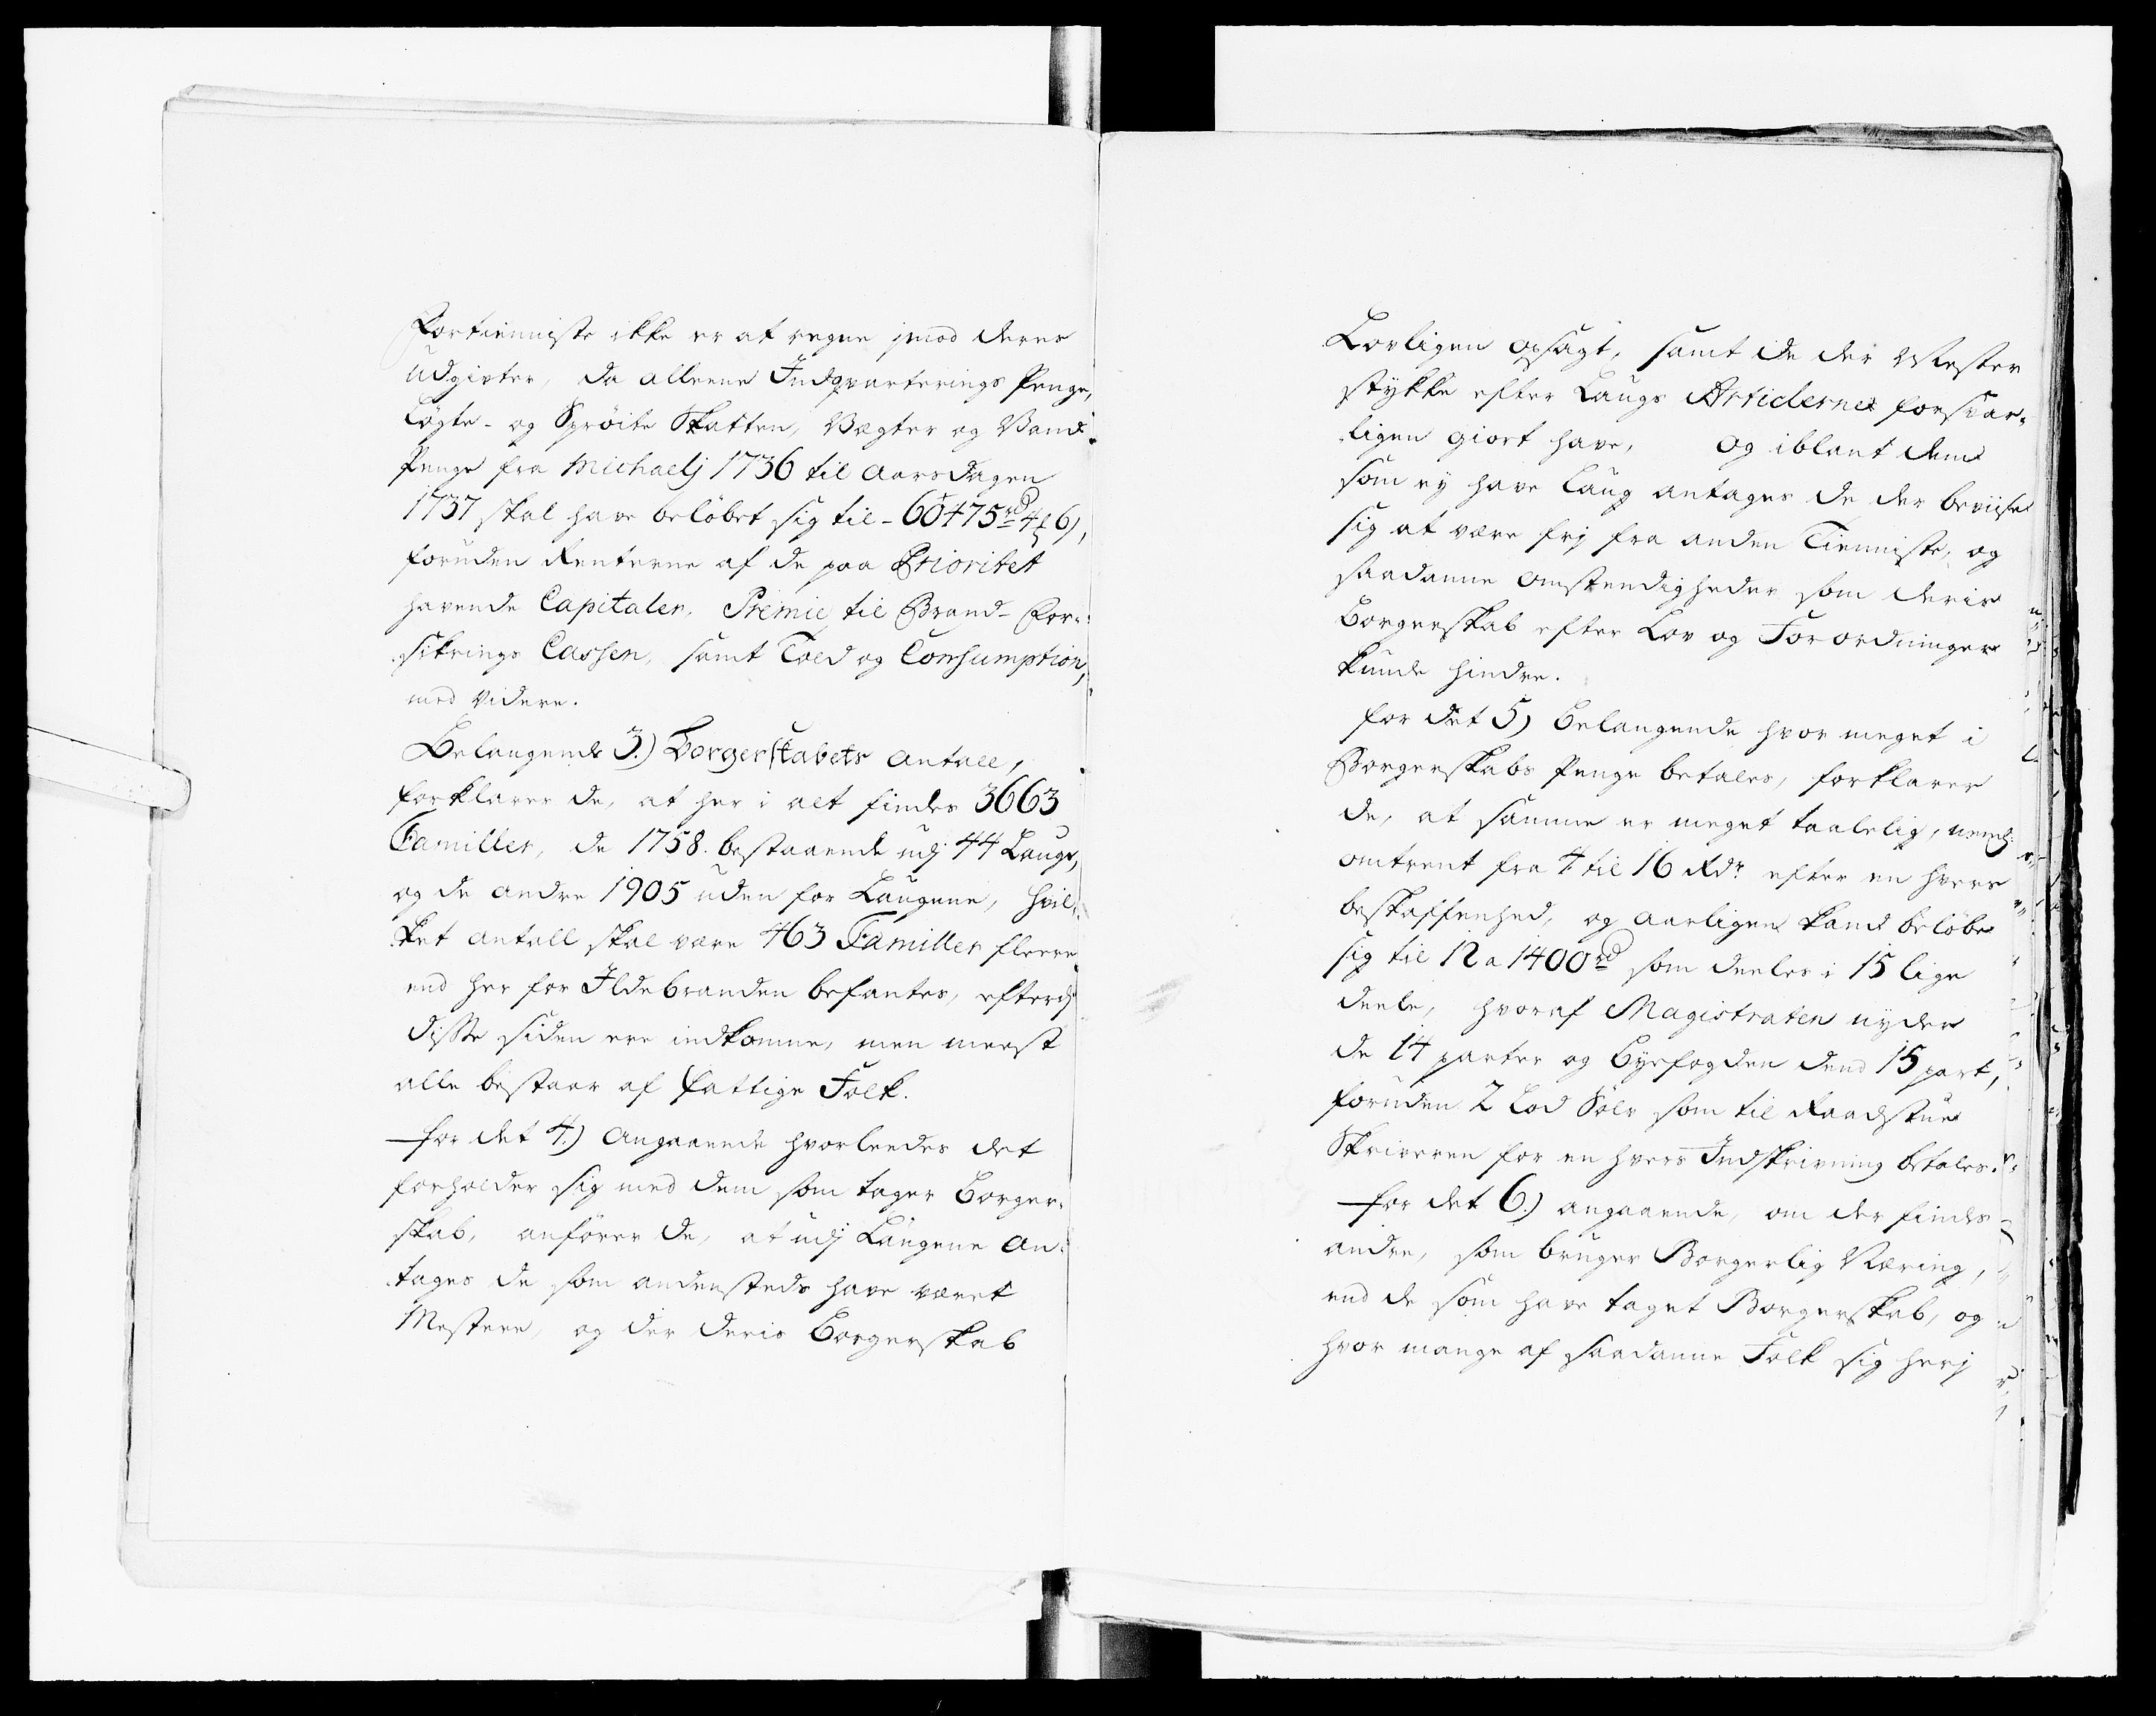 Fortieniste ikke er at regne imod deres
Udgivter, da alleene Indqvarterings Penge,
Løgte- og Sprøite Skatten, Vægter og Vand-
Penge fra Michaelj 1736 til Aarsdagen
1737 skal have beløbet sig til - 60475 rd 4 ß 6),
foruden Renterne af de paa Prioritet
havende Capitaler, Premie til Brand- For-
sikrings Cassen, samt Told og Consumption,
med videre.
Belangende 3.) Borgerskabets Antall,
forklarer de, at her i alt findes 3663
Familler, de 1758. bestaaende udj 44 Lauge,
og de andre 1905 uden for Laugene, hvil-
ket antall skal være 463 Familler fleere
end her for Ildebranden befantes, efterdj
disse siden ere indkomne, men meest
alle bestaar af fattige Folk.
for det 4.) Angaaende hvorleedes det
forholder sig med dem som tager Borger-
skab, anfører de, at udj Laugene an-
tages de som andensteds have været
Mestere, og der deris Borgerskab
Lovligen opsagt, samt de der Mester
stykke efter Laugs Articlerne forsvar-
ligen giort have, og iblant dem
som ej have Laug antages de der beviise
sig at være frj fra anden Tienniste, og
saadanne omstendigheder som deris
Borgerskab efter Lov og Forordninger
kunde hindre.
for det 5) Belangende hvor meget i
Borgerskabs Penge betales, forklarer
de, at samme er meget taalelig, neml:
omtrent fra 4 til 16 Rdr efter en hvers
beskaffenhed, og aarligen kand beløbe
sig til 12 a 1400 rd som deeles i 15 lige
deele, hvoraf Magistraten nyder
de 14 parter og Byefogden dend 15 part,
foruden 2 Lod Sølv som til Raadstue
Skriveren for en hvers Indskrivning betales.
for det 6.) angaaende, om der findes
andre, som bruger Borgerlig Næring,
end de som have taget Borgerskab, og
hvor mange af saadanne Folk sig herj